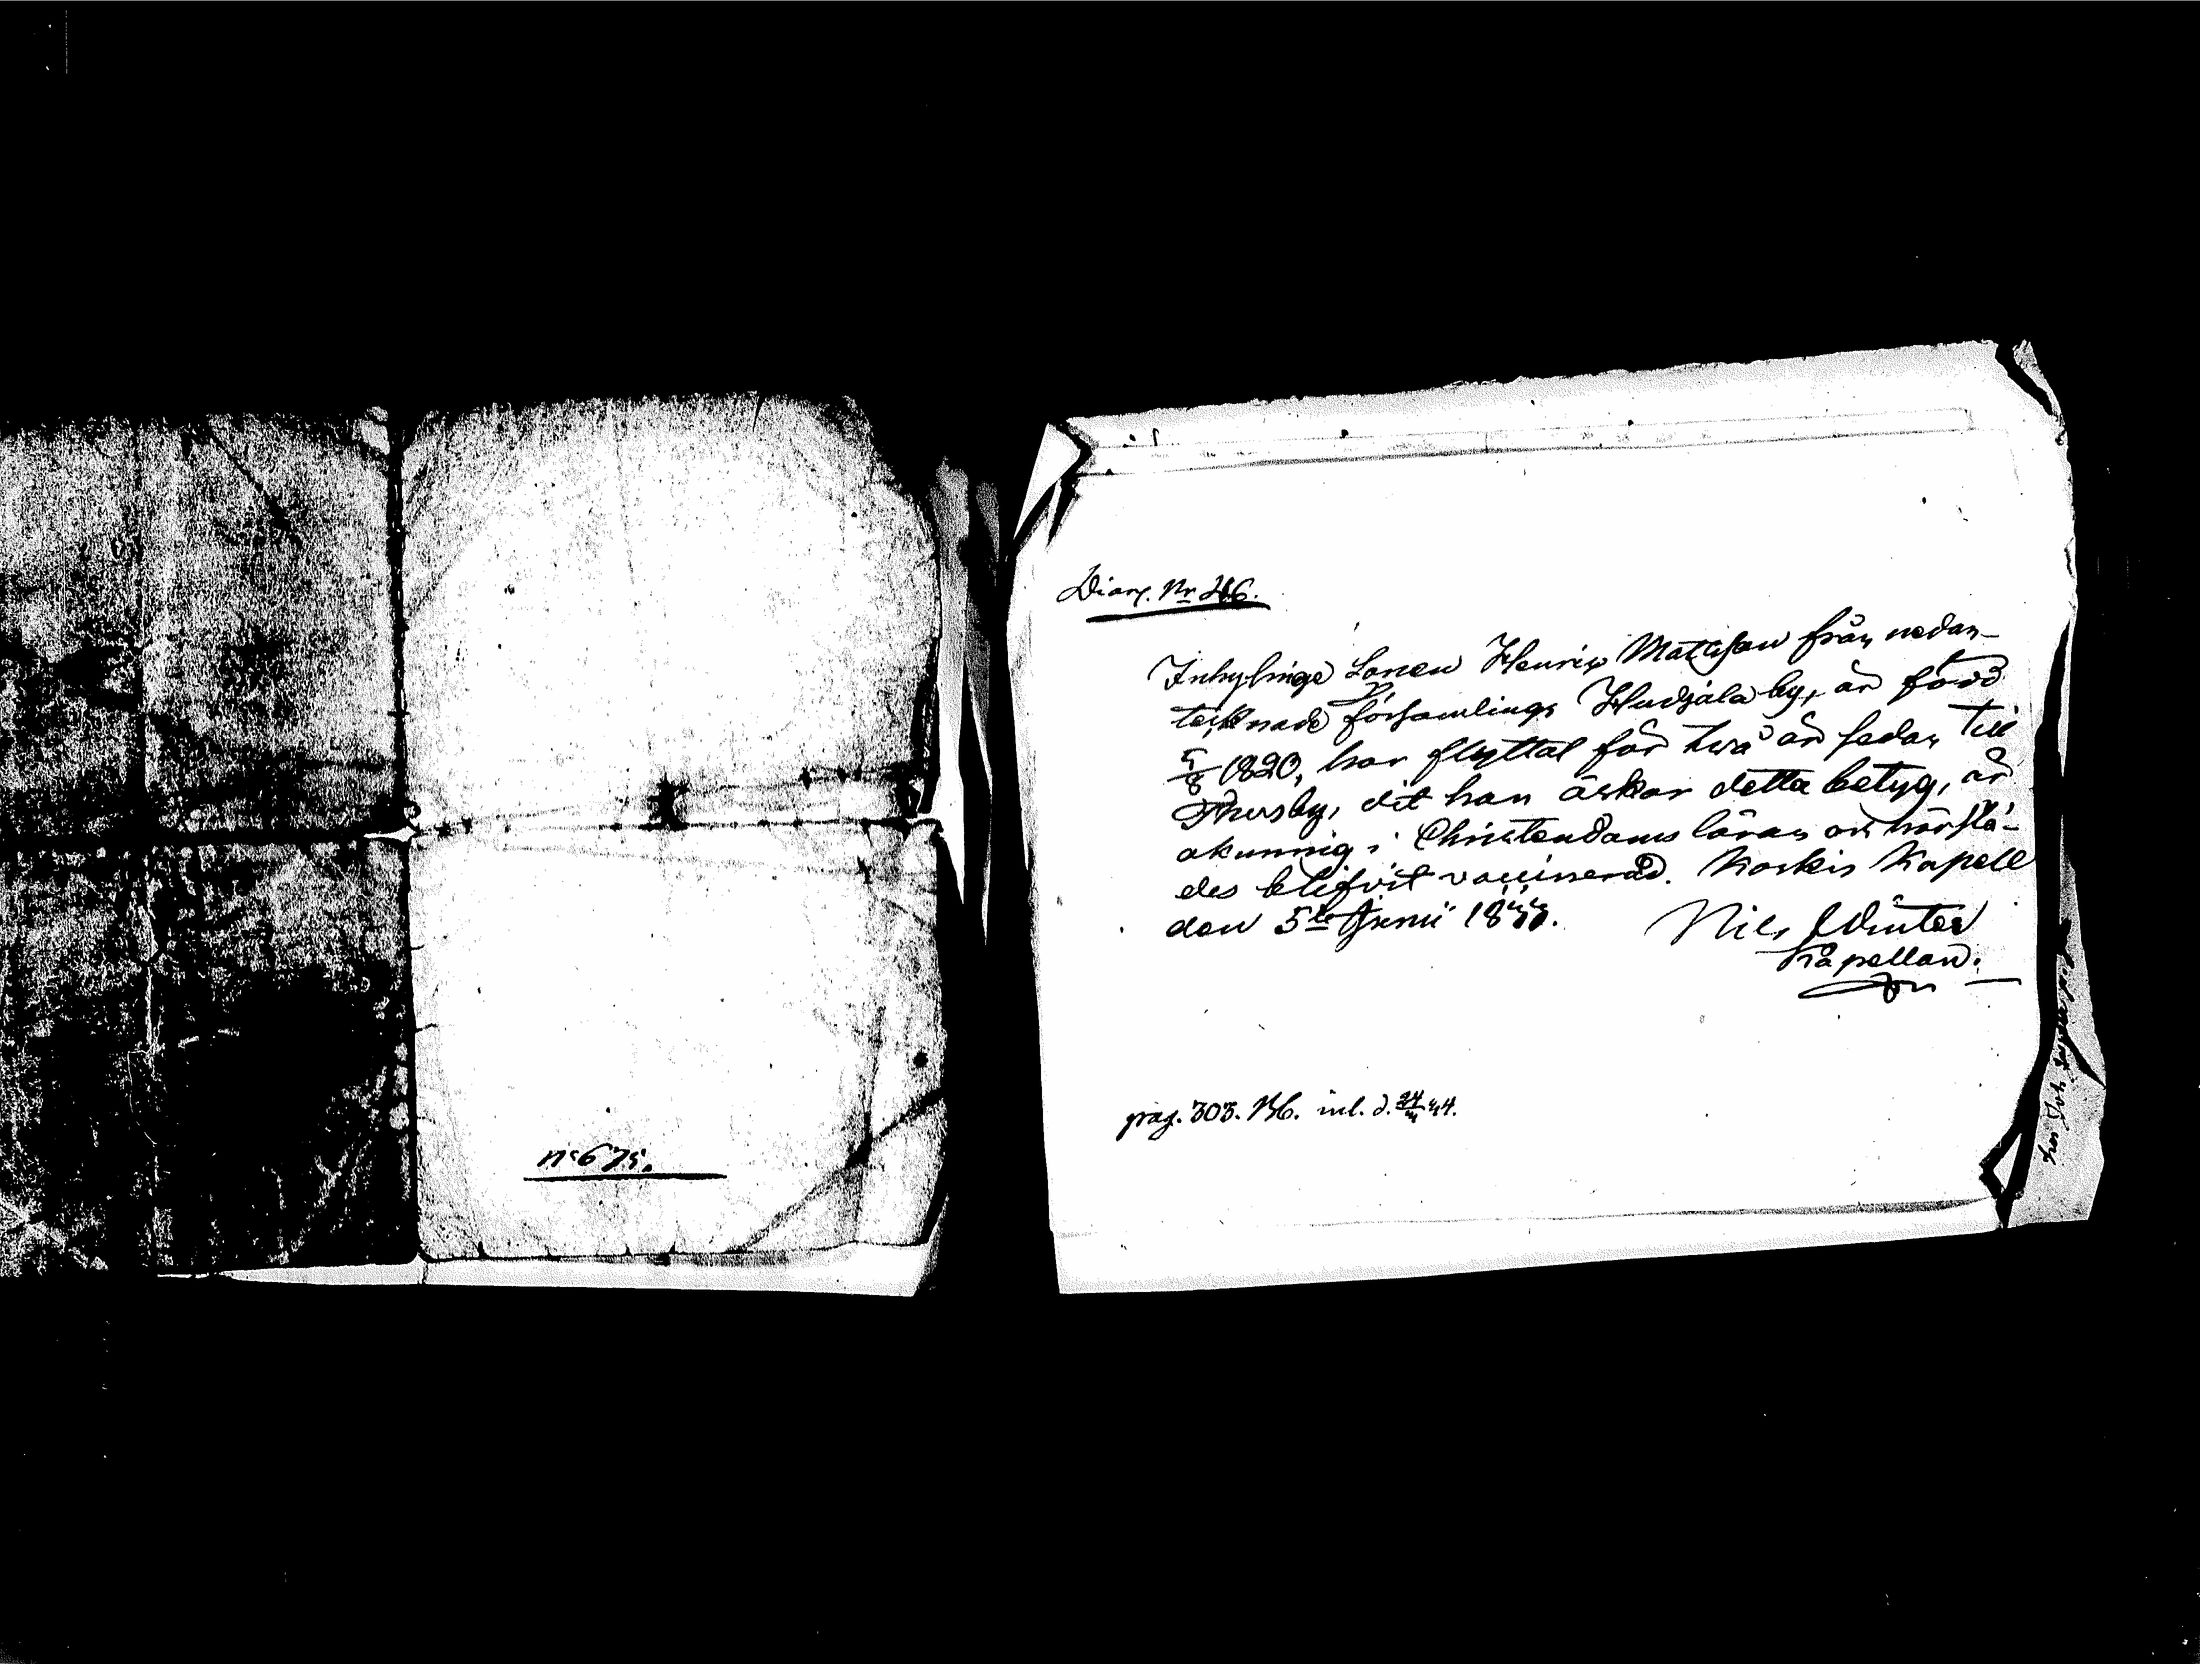 No 675.
Diar. Nr 216.
Inhysinge Sonen Henric Mattsson från nedan-
tecknade församlings Hudjala by, är född
5/8 1820, har flyttat för två år sedan till
Thusby, dit han äskar detta betyg, är
okunnig i Christendoms läran och har stä-
des blifvit vaccinerad. Koskis Kapell
den 5te Junii 1843.
Nils Winter
Kapellan.
pag. 303. inl. d. 24/4 44.